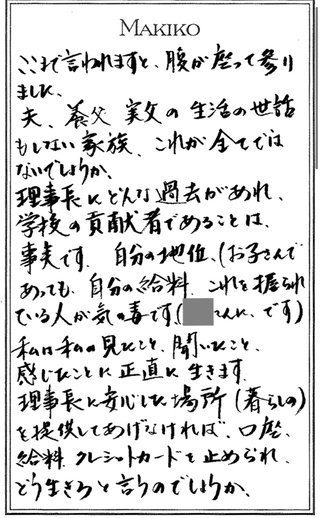 MAKIKO
ここまで言われますと、腹が座って参り
ました。
夫、養父 実父の生活の世話
もしない家族、これが全てでは
ないでしょうか、
理事長にどんな過去があれ、
学校の貢献者であることは、
事実です。 自分の地位、(お子さんで
あっても、自分の給料、これを握られ
ている人が気の毒です(さんに、です)
私は私の見たこと、聞いたこと、
感じたことに正直に生きます。
理事長に安心した場所(暮らしの)
を提供してあげなければ、口座、
給料、クレジットカードを止められ、
どう生きろと言うのでしょうか、